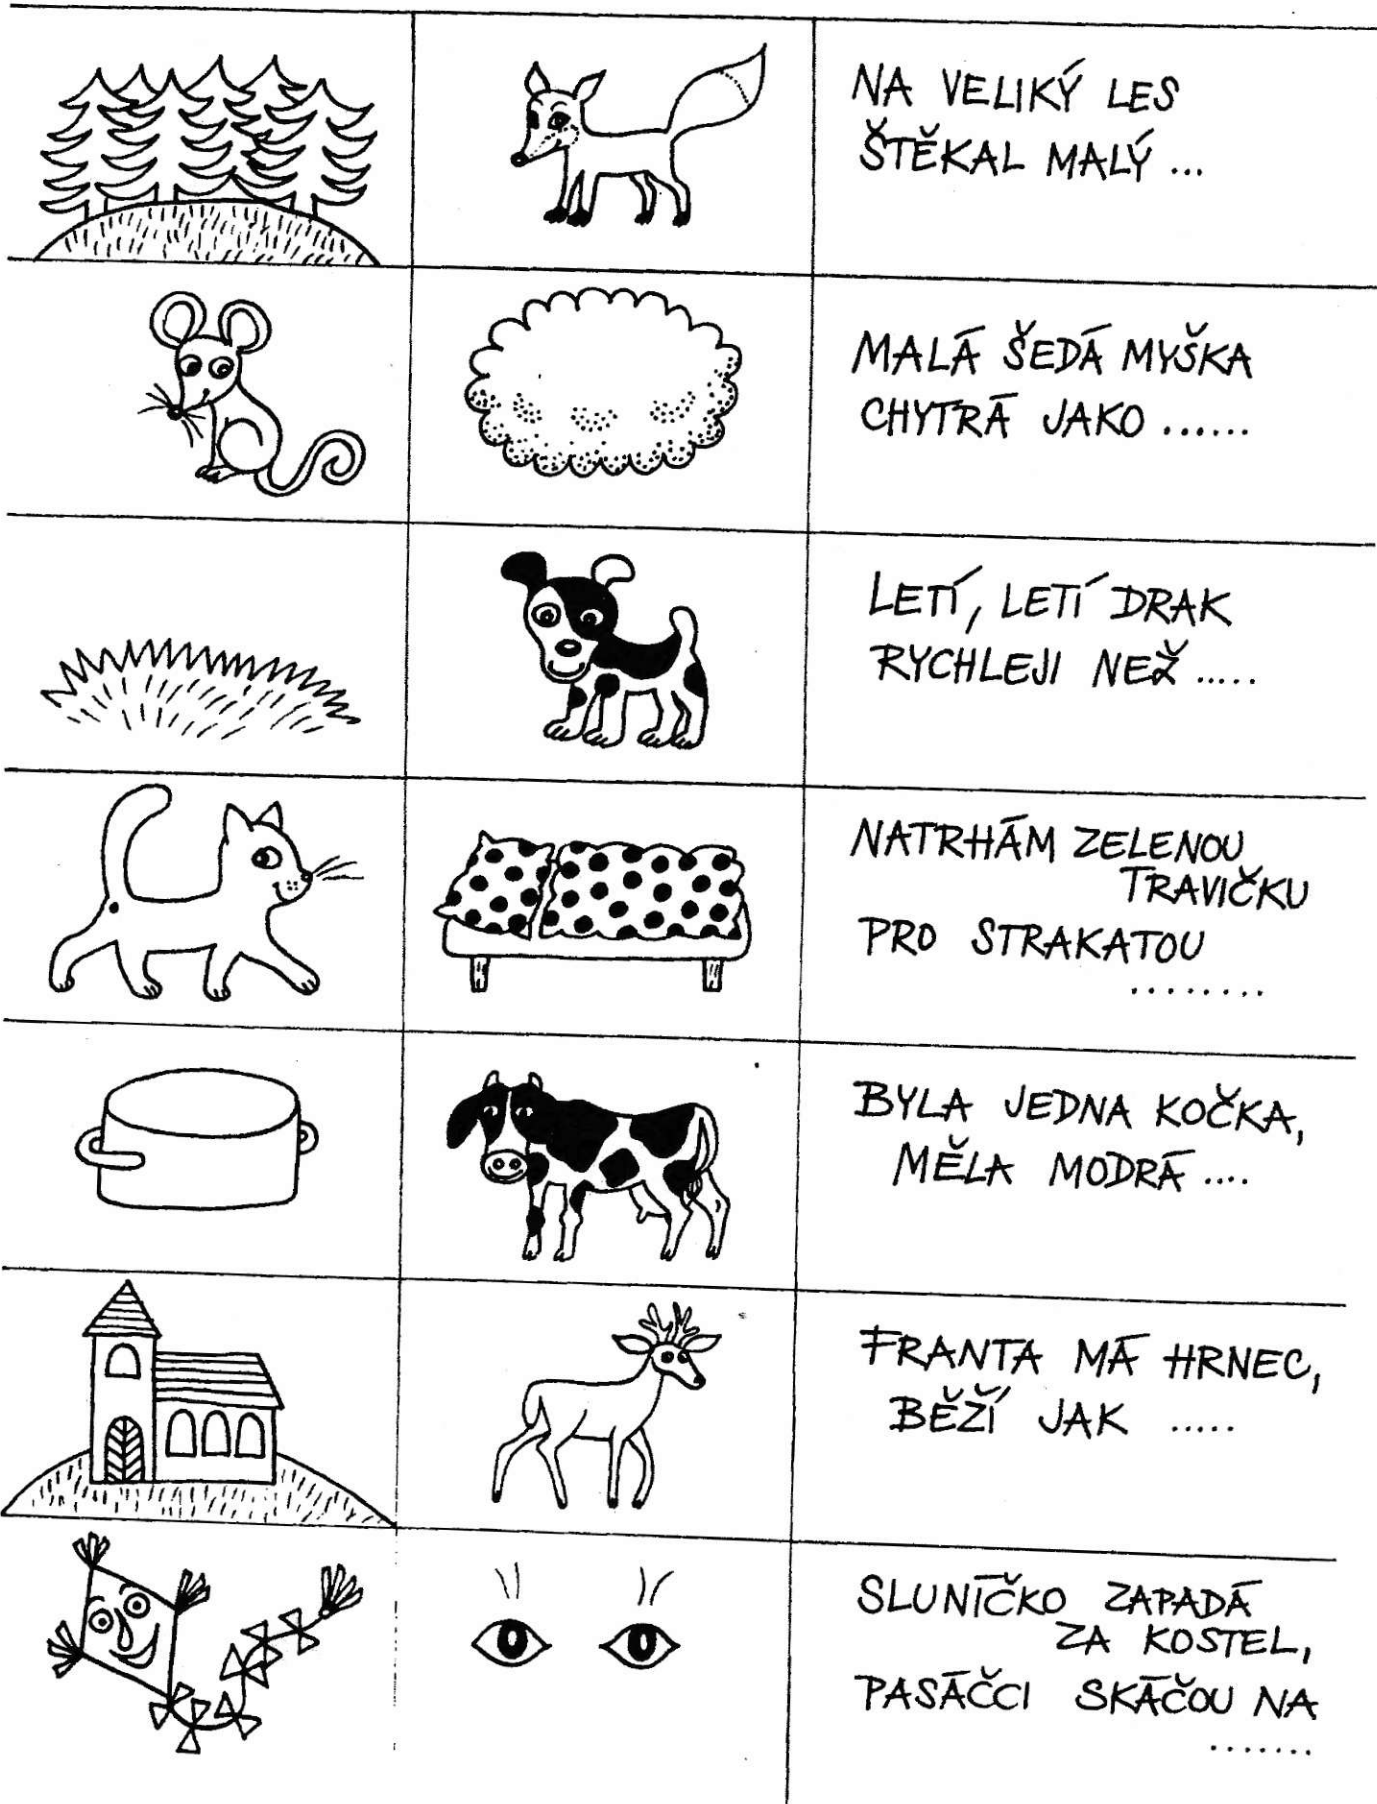 NA VELIKÝ LES
ŠTĚKAL MALÝ ...
MALÁ ŠEDÁ MYŠKA
CHYTRÁ JAKO ......
LETÍ, LETÍ DRAK
RYCHLEJI NEŽ .....
NATRHÁM ZELENOU
TRAVIČKU
PRO STRAKATOU
........
BYLA JEDNA KOČKA,
MĚLA MODRÁ ....
FRANTA MÁ HRNEC,
BĚŽÍ JAK .....
SLUNÍČKO ZAPADÁ
ZA KOSTEL,
PASÁČCI SKÁČOU NA
.......